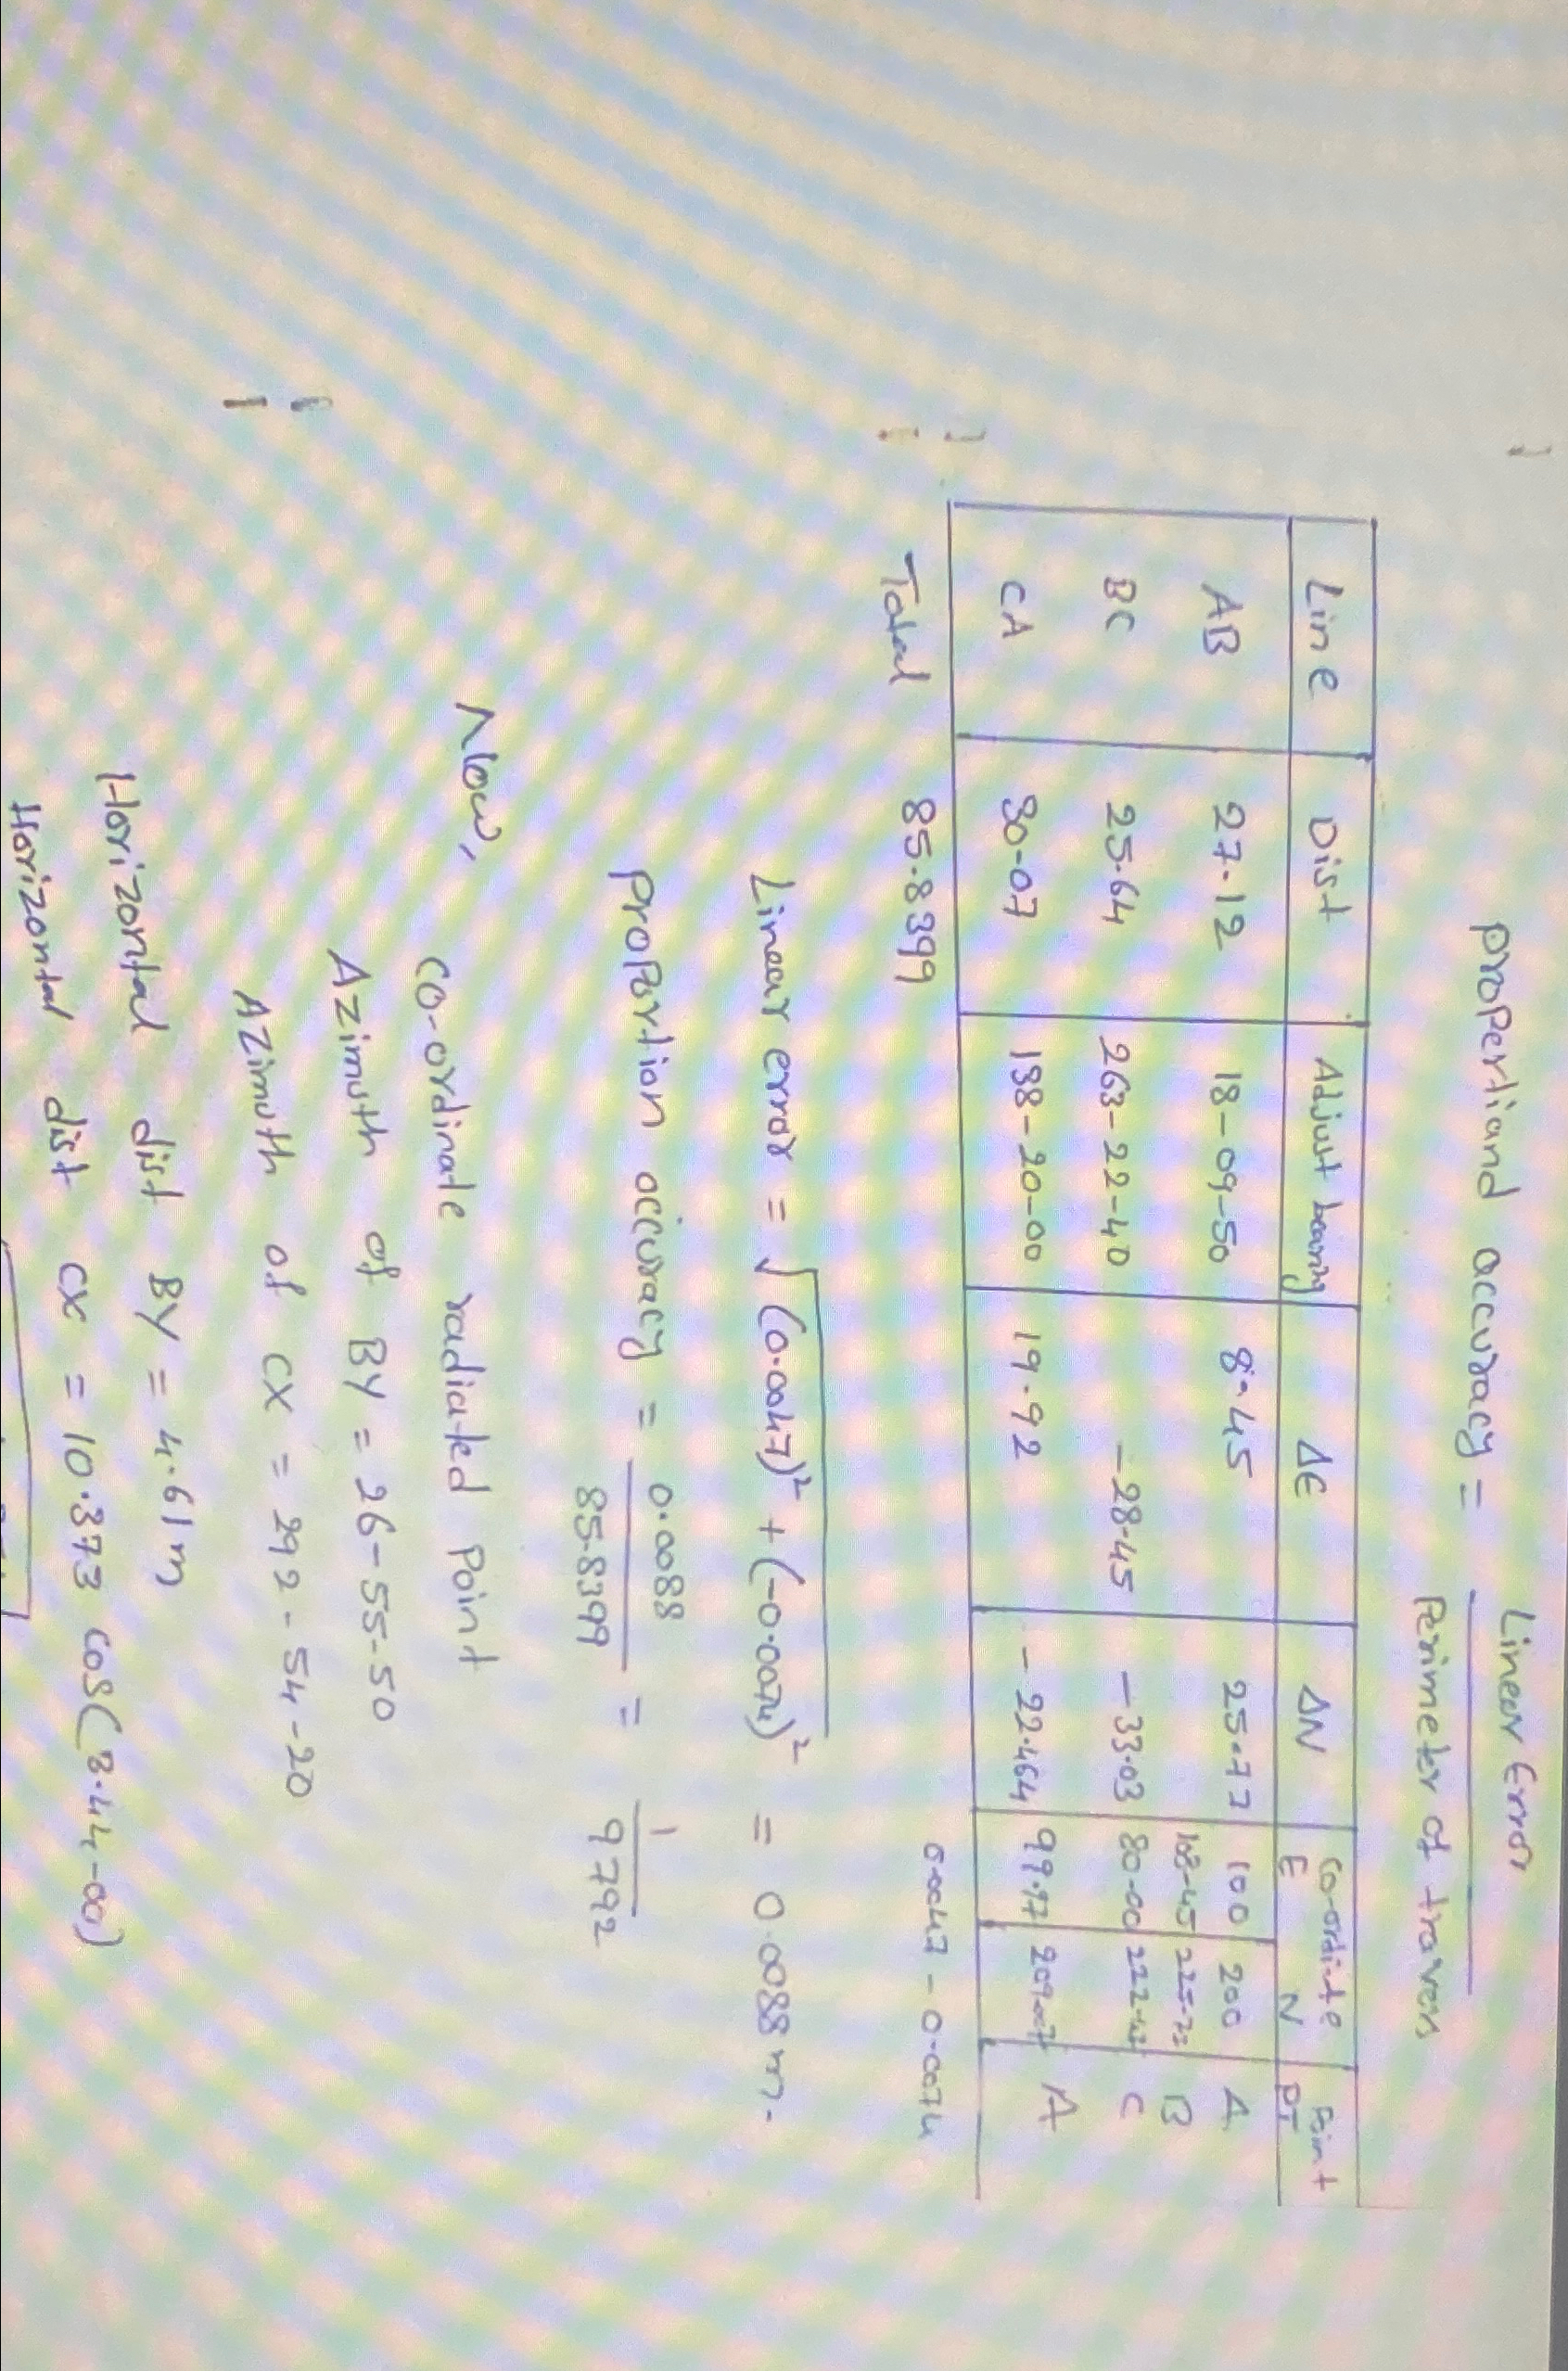 Propertiand accuracy = Linear Error
Perimeter of travers
Line Dist Adjust bearing ΔE ΔN Co-ordinate Point
E N PT
AB 27.12 18-09-50 8.45 25.77 100 200 A
108-45 225-77 B
BC 25.64 263-22-40 -28.45 -33.03 80-00 222-42 C
CA 30-07 138-20-00 19.92 -22.464 99.97 A
Total 85.8399 0.0047 -0.0074
Linear error = √(0.0047)² + (-0.0074)² = 0.0088 m.
Proportion accuracy = 0.0088 = 1
85.8399 9792
Now,
co-ordinate radiated Point
Azimuth of BY = 26-55-50
Azimuth of CX = 292-54-20
Horizontal dist BY = 4.61m
Horizontal dist CX = 10.373 cos(3.44-00)